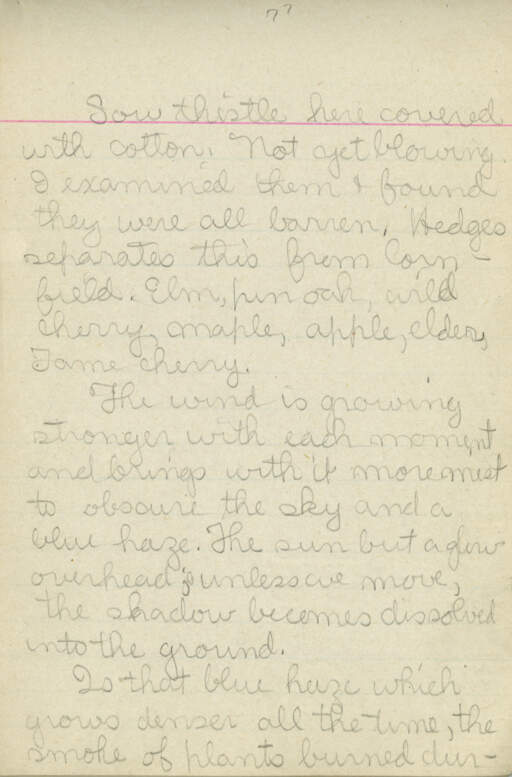 77
Sow thistle here covered
with cotton. Not yet blowing.
I examined them & found
they were all barren. Hedges
separates this from Corn-
field. Elm, pin oak, wild
cherry, maple, apple, elder,
Tame cherry.
The wind is growing
stronger with each moment
and brings with it more mist
to obscure the sky and a
blue haze. The sun but a glow
overhead; unless we move,
the shadow becomes dissolved
into the ground.
Is that blue haze which
grows denser all the time, the
smoke of plants burned dur-